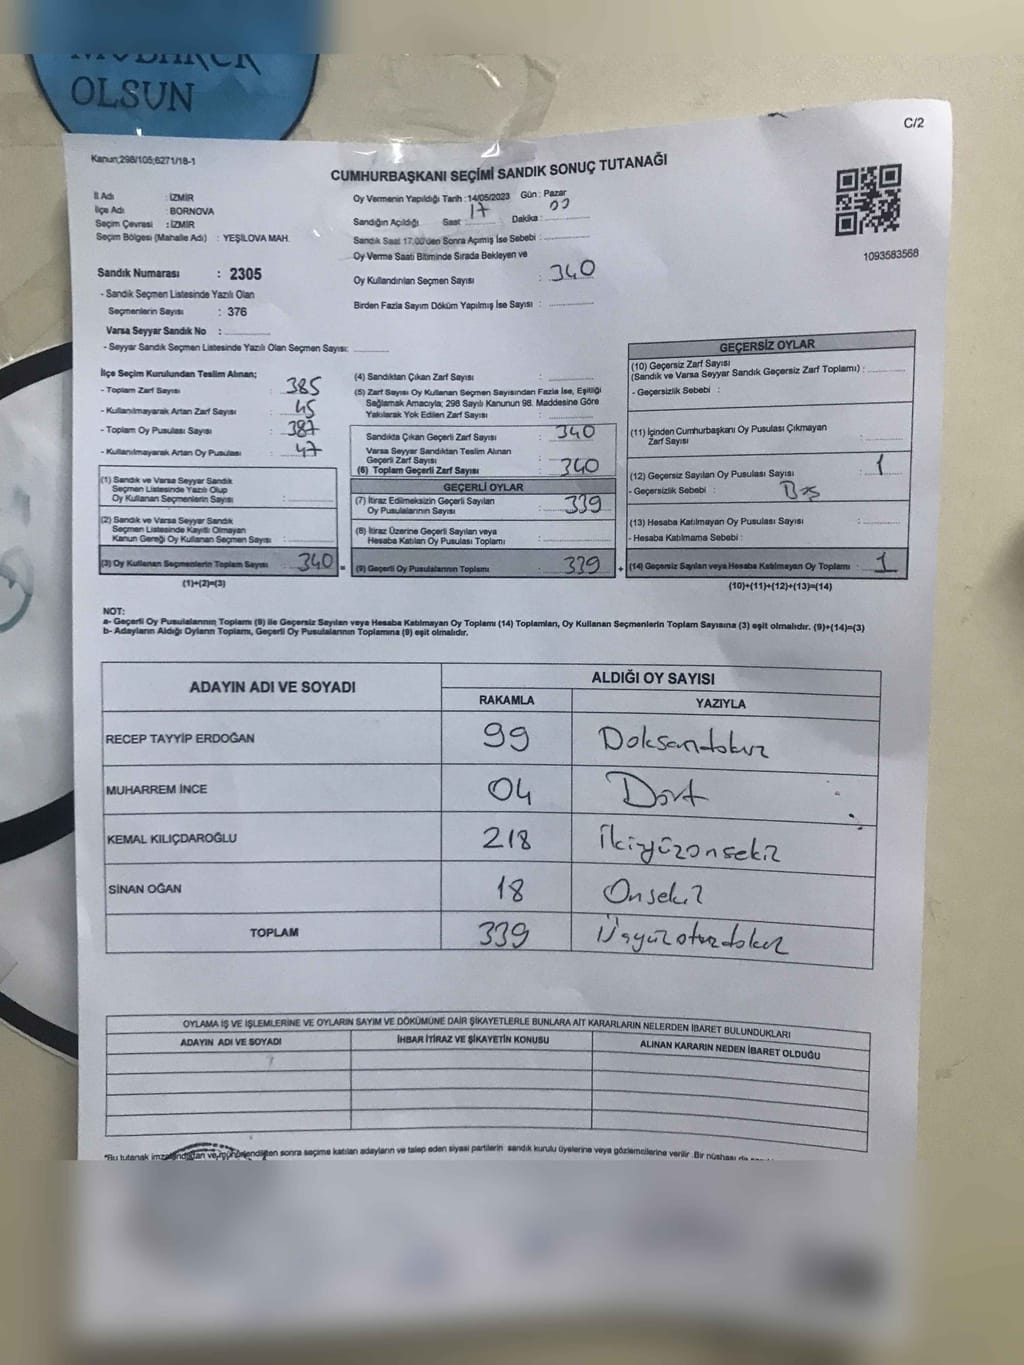 OLSUN
C/2
Kanun;298/105;6271/18-1
CUMHURBAŞKANI SEÇİMİ SANDIK SONUÇ TUTANAĞI
İl Adı : İZMİR
İlçe Adı : BORNOVA
Seçim Çevresi : İZMİR
Seçim Bölgesi (Mahalle Adı) : YEŞİLOVA MAH.
Oy Vermenin Yapıldığı Tarih : 14/05/2023 Gün : Pazar
Sandığın Açıldığı Saat : 17 Dakika : 00
Sandık Saat 17.00'den Sonra Açımış İse Sebebi :
Oy Verme Saati Bitiminde Sırada Bekleyen ve
Oy Kullandırılan Seçmen Sayısı : 340
Birden Fazla Sayım Döküm Yapılmış İse Sayısı :
1093583568
Sandık Numarası : 2305
- Sandık Seçmen Listesinde Yazılı Olan
Seçmenlerin Sayısı : 376
Varsa Seyyar Sandık No :
- Seyyar Sandık Seçmen Listesinde Yazılı Olan Seçmen Sayısı:
İlçe Seçim Kurulundan Teslim Alınan;
- Toplam Zarf Sayısı : 385
- Kullanılmayarak Artan Zarf Sayısı : 45
- Toplam Oy Pusulası Sayısı : 387
- Kullanılmayarak Artan Oy Pusulası : 47
(1) Sandık ve Varsa Seyyar Sandık
Seçmen Listesinde Yazılı Olup
Oy Kullanan Seçmenlerin Sayısı :
(2) Sandık ve Varsa Seyyar Sandık
Seçmen Listesinde Kayıtlı Olmayan
Kanun Gereği Oy Kullanan Seçmen Sayısı :
(3) Oy Kullanan Seçmenlerin Toplam Sayısı : 340 =
(1)+(2)=(3)
(4) Sandıktan Çıkan Zarf Sayısı :
(5) Zarf Sayısı Oy Kullanan Seçmen Sayısından Fazla İse, Eşitliği
Sağlamak Amacıyla; 298 Sayılı Kanunun 98. Maddesine Göre
Yakılarak Yok Edilen Zarf Sayısı :
Sandıkta Çıkan Geçerli Zarf Sayısı : 340
Varsa Seyyar Sandıktan Teslim Alınan
Geçerli Zarf Sayısı :
(6) Toplam Geçerli Zarf Sayısı : 340
GEÇERLİ OYLAR
(7) İtiraz Edilmeksizin Geçerli Sayılan
Oy Pusulalarının Sayısı : 339
(8) İtiraz Üzerine Geçerli Sayılan veya
Hesaba Katılan Oy Pusulası Toplamı :
(9) Geçerli Oy Pusulalarının Toplamı : 339 +
GEÇERSİZ OYLAR
(10) Geçersiz Zarf Sayısı
(Sandık ve Varsa Seyyar Sandık Geçersiz Zarf Toplamı) :
- Geçersizlik Sebebi :
(11) İçinden Cumhurbaşkanı Oy Pusulası Çıkmayan
Zarf Sayısı :
(12) Geçersiz Sayılan Oy Pusulası Sayısı : 1
- Geçersizlik Sebebi : Boş
(13) Hesaba Katılmayan Oy Pusulası Sayısı :
- Hesaba Katılmama Sebebi :
(14) Geçersiz Sayılan veya Hesaba Katılmayan Oy Toplamı : 1
(10)+(11)+(12)+(13)=(14)
NOT:
a- Geçerli Oy Pusulalarının Toplamı (9) ile Geçersiz Sayılan veya Hesaba Katılmayan Oy Toplamı (14) Toplamları, Oy Kullanan Seçmenlerin Toplam Sayısına (3) eşit olmalıdır. (9)+(14)=(3)
b- Adayların Aldığı Oyların Toplamı, Geçerli Oy Pusulalarının Toplamına (9) eşit olmalıdır.
ADAYIN ADI VE SOYADI ALDIĞI OY SAYISI
RAKAMLA YAZIYLA
RECEP TAYYİP ERDOĞAN 99 Doksandokuz
MUHARREM İNCE 04 Dört
KEMAL KILIÇDAROĞLU 218 İkiyüzonsekiz
SİNAN OĞAN 18 Onsekiz
TOPLAM 339 Üçyüzotuzdokuz
OYLAMA İŞ VE İŞLEMLERİNE VE OYLARIN SAYIM VE DÖKÜMÜNE DAİR ŞİKAYETLERLE BUNLARA AİT KARARLARIN NELERDEN İBARET BULUNDUKLARI
ADAYIN ADI VE SOYADI İHBAR İTİRAZ VE ŞİKAYETİN KONUSU ALINAN KARARIN NEDEN İBARET OLDUĞU
"Bu tutanak imzalandıktan ve mühürlendikten sonra seçime katılan adayların ve talep eden siyasi partilerin sandık kurulu üyelerine veya gözlemcilerine verilir. Bir nüshası da